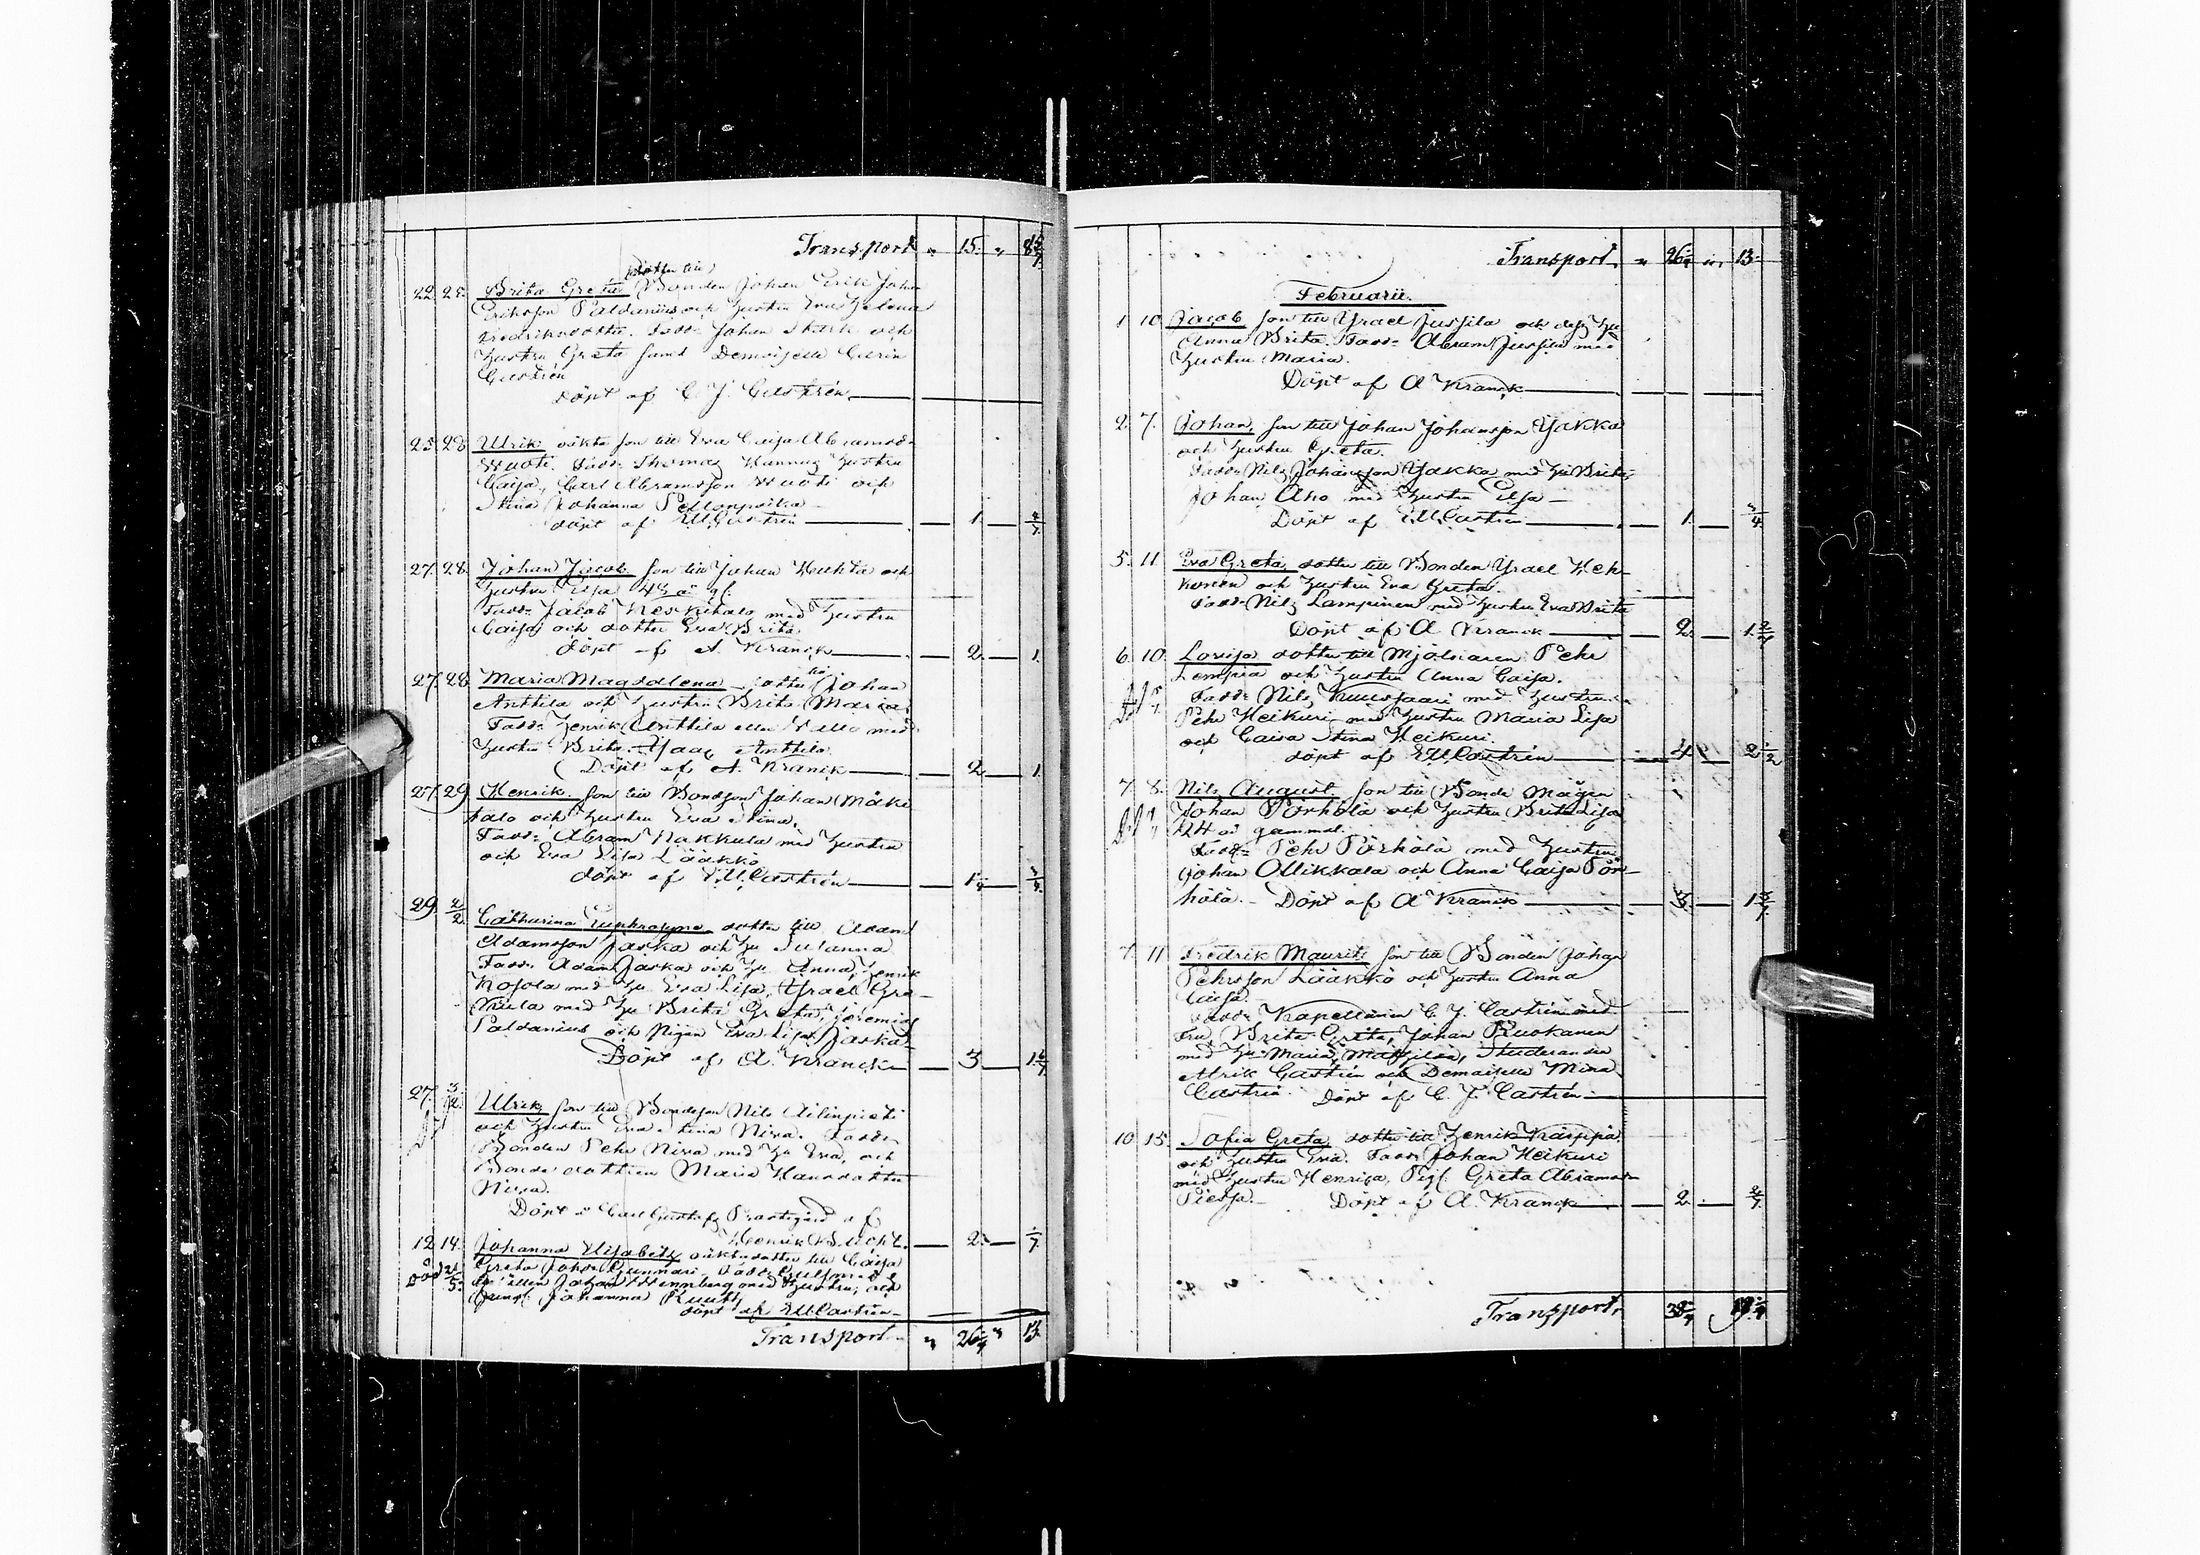 Transport " 15. "
dotter till
22. 25. Brita Greta Bonden Johan Erik Johan
Eriksson Paldanius och hustru Eva Helena
Fredriksdotter. Fadd: Johan Stark och
hustru Greta samt Demoiselle Carin
Castrén
döpt af C. J. Castrén.
25. 28. Ulrik oäkta son till Eva Caisa Abramsdr
Huoti. Fadd: Thomas Hannus hustru
Caisa, Carl Abramsson Huoti och
Stina Johanna
döpt af EMCastrén 1.
27. 28. Johan Jacob son till Johan Huhta och
hustru Lisa 43 år gl:
Fadd: Jacob Keskitalo med hustru
Caisa och dotter Eva Brita
döpt af A. Kranck 2. 1.
27. 28. Maria Magdalena dotter till Johan
Anttila och hustru Brita Maria.
Fadd: Henrik Anttila eller med
hustru Brita. Isaac Anttila.
Döpt af A. Kranck 2. 1.
27. 29. Henrik son till Bondson Johan Mäki
talo och hustru Eva Stina.
Fadd: Abram Nakkula med hustru
och Eva Lisa Lääkkö
döpt af EMCastrén
29. 2/2. Catharina Euphrosyne dotter till Adam
Adamsson Jaska och hu Susanna
Fadd: Adam Jaska och hu Anna, Henrik
Kojola med hu Eva Lisa, Israel
med hu Brita Greta, Jeremias
Paldanius och Pigan Eva Lisa Jaska
Döpt af A. Kranck 3
27. Ulrik son till Bondeson Nils Ailinpieti
och hustru Eva Stina Niva. Fadd:
Bonden Pehr Niva med hu Eva, och
Bonde dottren Maria Hansdotter
Niva.
Döpt i Carl Gustafs Prästgård af
Henrik Bucht. 2.
12. 14. Johanna Elisabeth oäkta dotter till Caisa
Greta Johdr Gunnari. Fadd:
Johan Wennberg med hustru, och
Johanna Ruutti
döpt af EMCastrén
Transport " 26 " 13.
Transport " 26 " 13.
Februarii.
1. 10. Jacob son till Israel Jussila och dess hu
Anna Brita. Fadd: Abram Jussila med
hustru Maria.
Döpt af A Kranck
2. 7. Johan, son till Johan Johansson Yakka
och hustru Greta.
Fadd: Nils Johansson Yakka med hu Brita,
Johan Aho med hustru Lisa
Döpt af EMCastrén 1. 3/4.
5. 11. Eva Greta, dotter till Bonden Israel Hek-
konen och hustru Eva Greta.
Fadd: Nils Lampinen med hustru Eva Brita
Döpt af A Kranck 2.
6. 10. Lovisa dotter till Mjölnaren Pehr
Lempiä och hustru Anna Caisa.
Fadd: Nils Kuusijaari med hustru
Pehr Heikuri med hustru Maria Lisa
och Caisa Stina Heikuri.
döpt af EMCastrén 4
7. 8. Nils August. son till Bonde Mågen
Johan Pörhölä och hustru Brita Lisa
44 år gammal.
Fadd: Pehr Pörhölä med hustru
Johan Ollikkala och Anna Caisa Pör-
hölä. Döpt af A Kranck 3.
7. 11. Fredrik Maurits son till Bonden Johan
Pehrsson Lääkkö och hustru Anna
Caisa.
Fadd: Kapellanen C. J. Castrén med
Fru Brita Greta, Johan Ruokanen
med hu Maria Mathilda, Studeranden
Ulrik Castrén och Demoiselle Mina
Castrén. Döpt af C. J. Castrén
10. 15. Sofia Greta, dotter till Henrik
och hustru Eva. Fadd: Johan Heikuri
med hustru Henrica, Pig: Greta Abramsdr
Döpt af A. Kranck 2.
Transport.